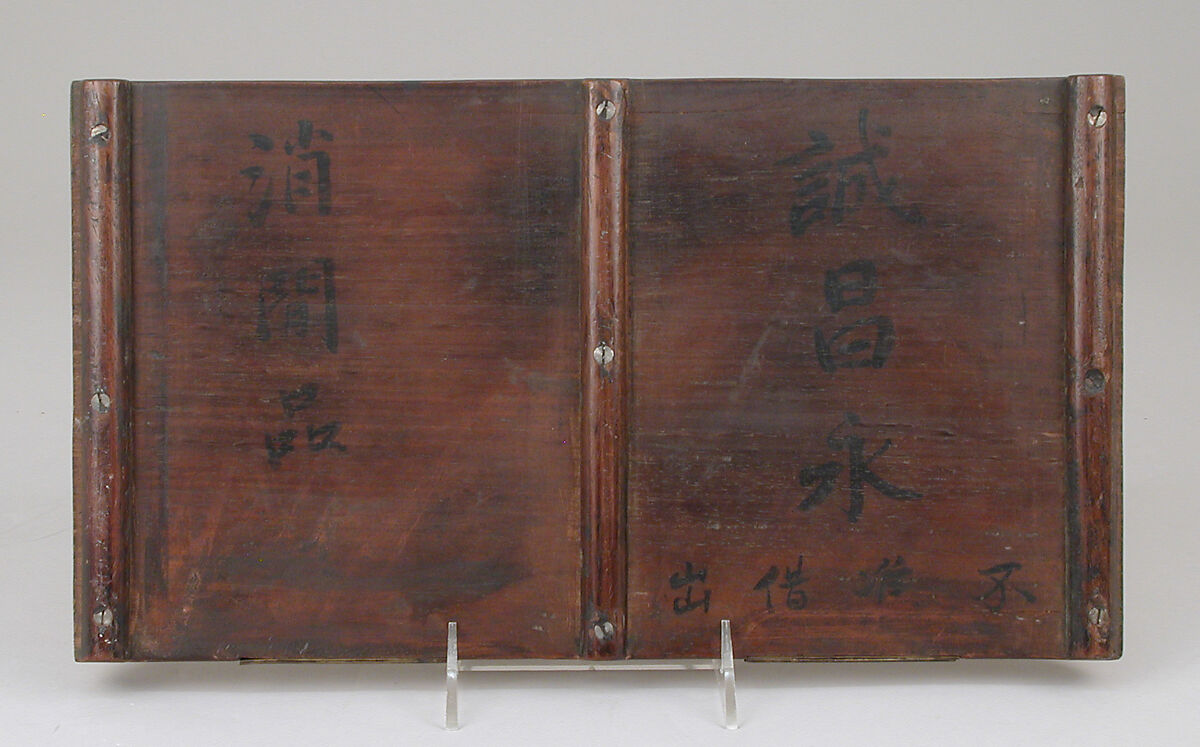 誠昌永
不准借出
消閒品